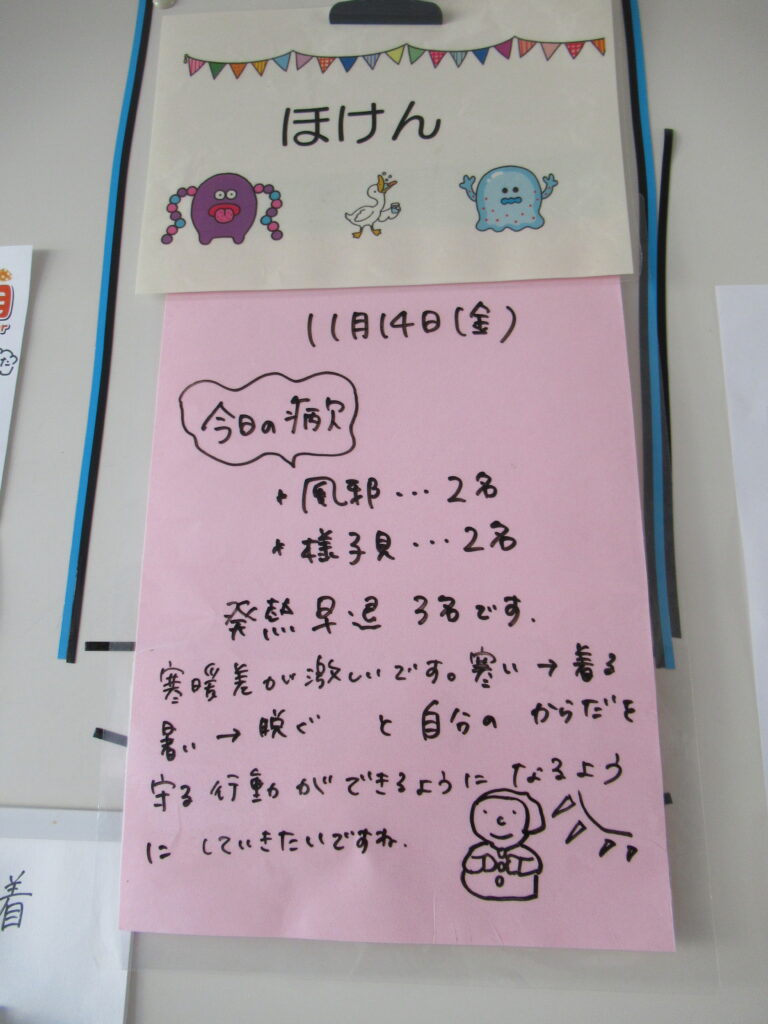 ほけん
11月14日(金)
今日の病欠
・風邪…2名
・様子見…2名
発熱早退 3名です.
寒暖差が激しいです。寒い→着る
暑い→脱ぐ と自分のからだを
守る行動ができるようになるよう
にしていきたいですね.
着